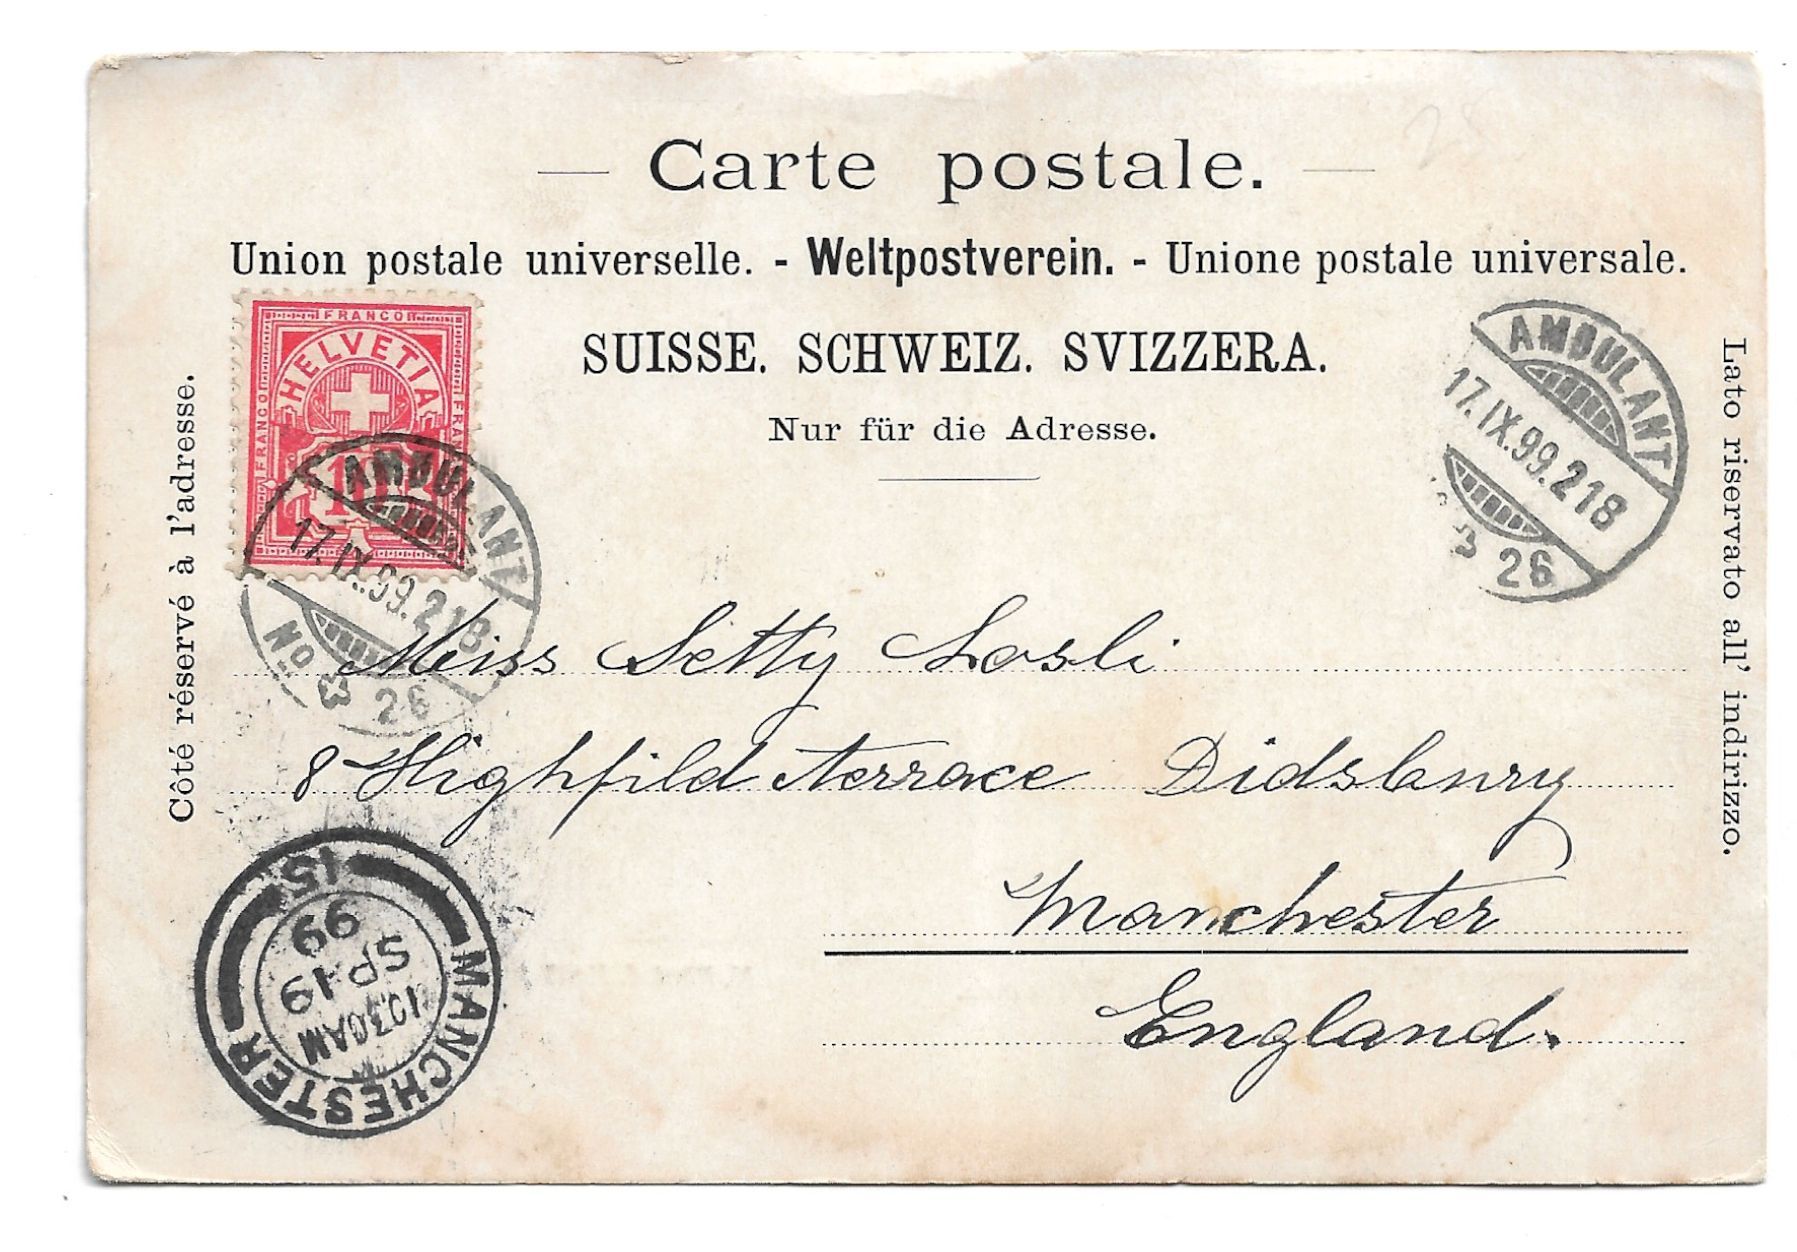 Carte postale.
Union postale universelle. - Weltpostverein. - Unione postale universale.
SUISSE. SCHWEIZ. SVIZZERA.
Nur für die Adresse.
Côté réservé à l'adresse.
Lato riservato all' indirizzo.
FRANCO
FRANCO
FRANCO
HELVETIA
10
AMBULANT
17.IX.99.218
No 26
AMBULANT
17.IX.99.218
26
Miss Setty Losli
8 Highfild terrace Didsbury
Manchester
England.
MANCHESTER
10.30AM
SP 19
99
15